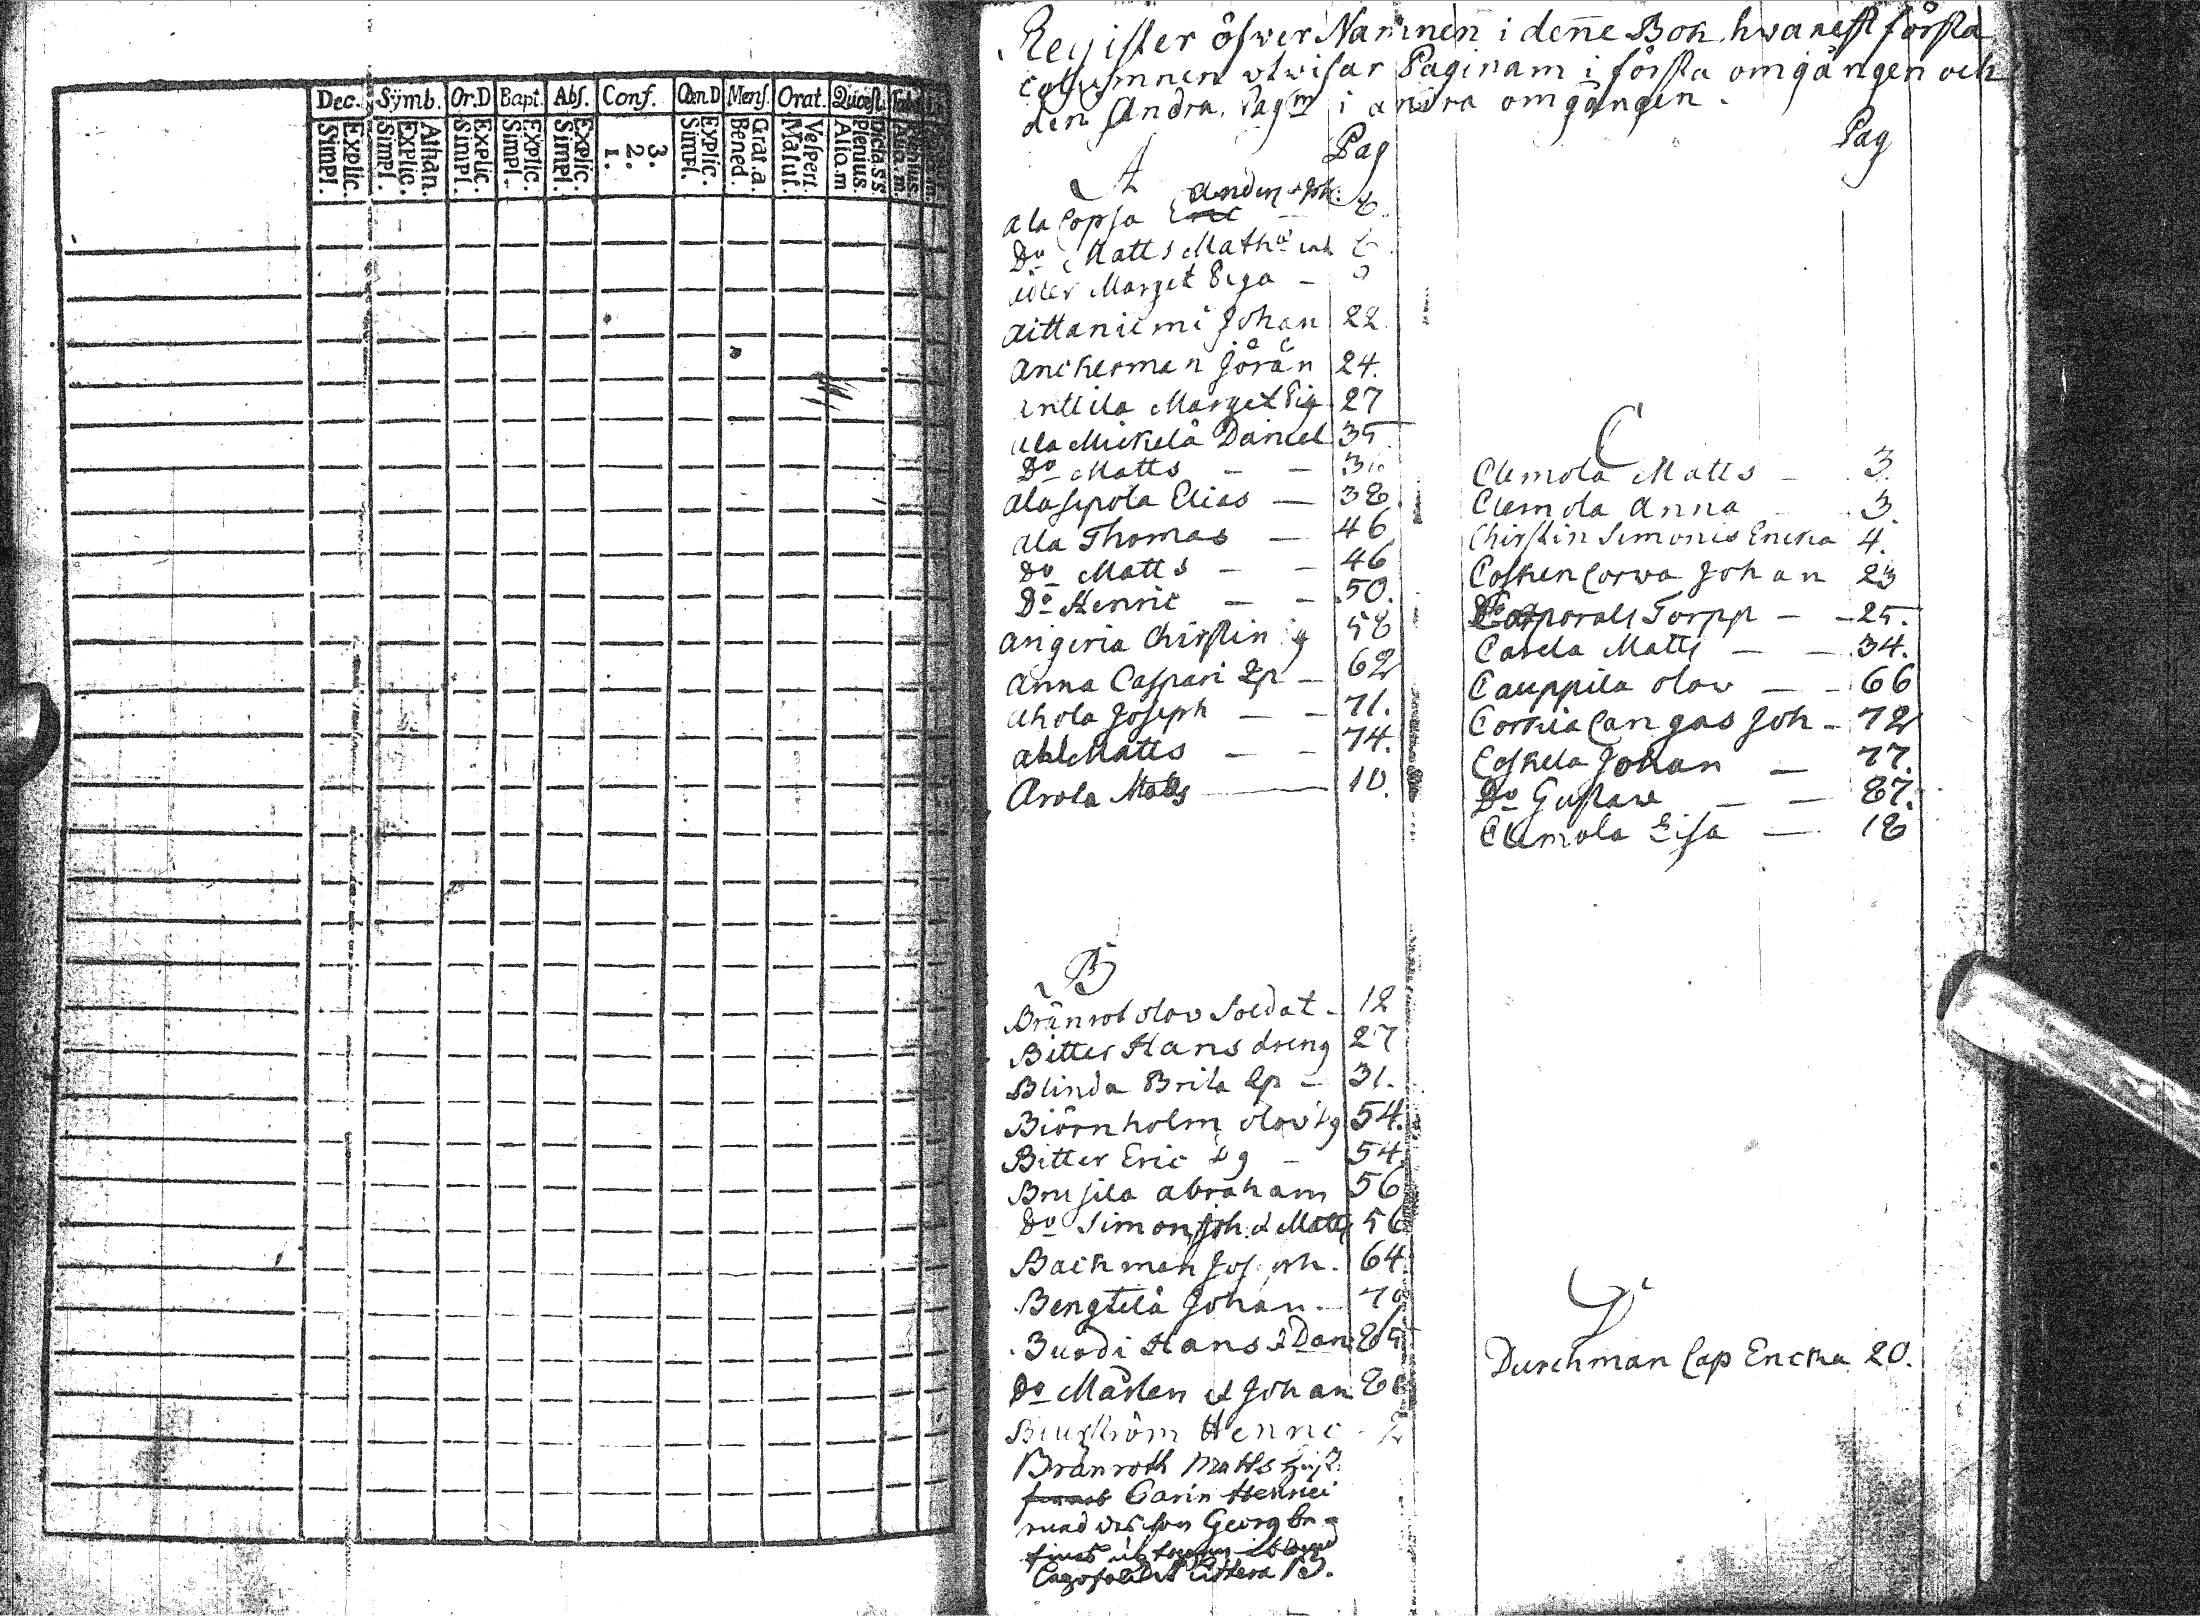 Dec. Symb. Or.D Bapt. Abs. Conf. Qæn D Mens. Orat. Quæst.
Simpl. Explic. Simpl. Explic. Athan. Simpl. Explic. Simpl. Explic. Simpl. Explic. 1. 2. 3. Simpl. Explic. Bened. Grat.a. Matut. Vespert. Alio.m Plenius. Dicta.S.S.
Register öfwer Namnen i den̄e Bok hwarest första
columnen utwisar Paginam i första omgången och
den Andra Pagm i andra omgången.
Pag
A
Ala Copsa Eric
Do Matts
Marget Piga
Aittaniemi Johan 22
Anckerman Jörän 24.
Anttila Marget Pig 27
Ala Mickelä Daniel 35
Do Matts
Alasepola Elias 38
Ala Thomas 46
Do Matts 46
Do Henric 50.
Angeria Chirstin 58
Anna Caspari 62
Ahola Joseph 71.
Matts 74.
Arola Matts 10.
B
Bränrot Olov Soldat 12
Bitter Hans dreng 27
Blinda Brita 31.
Biörnholm Olov 54.
Bitter Eric 54.
Brusila Abraham 56
Do Simon Joh. & Matts 56
Bachman Joseph. 64.
Bengtilä Johan.
Buodi Hans & Dan
Do Mårten & Johan
Henric
Bränroth Matts
Carin Henrici
Georg
Littera
Pag
C
Clemola Matts 3.
Clemola Anna 3.
Chirstin Simonis Encka 4.
Coskencorwa Johan 23
Corporals Torpp 25.
Casela Matts 34.
Cauppila Olov 66
Corkiacangas Joh 72
Coskela Johan 77.
Do Gustaw 87.
Clemola Lisa 18
D
Durchman Cap Encka 20.